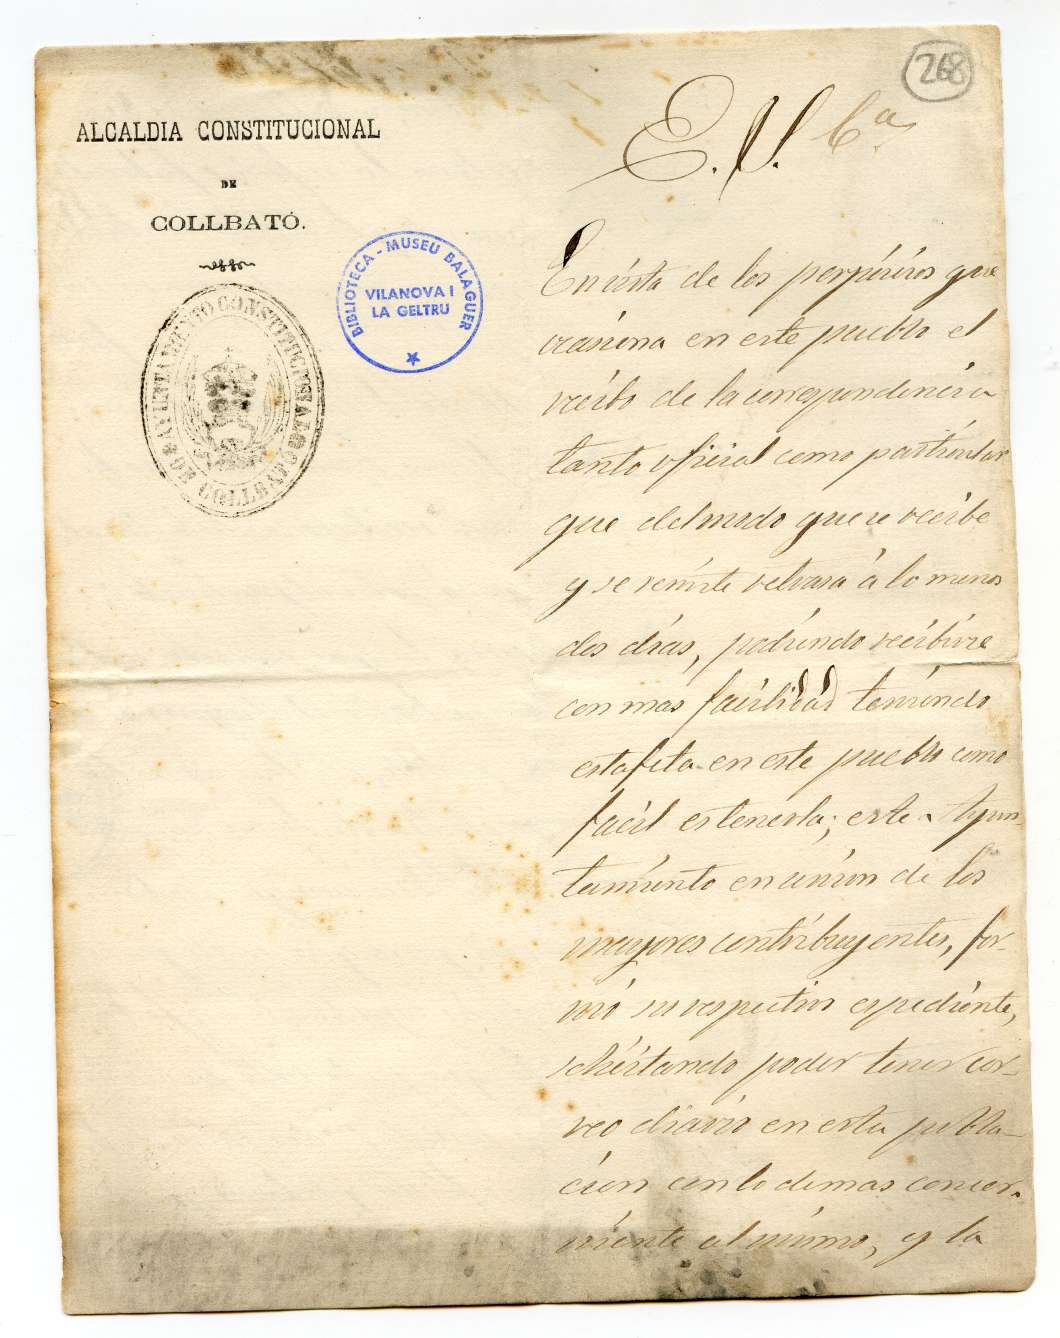 268
ALCALDIA CONSTITUCIONAL
DE
COLLBATÓ.
AYUNTAMIENTO CONSTITUCIONAL DE COLLBATÓ
BIBLIOTECA - MUSEU BALAGUER
VILANOVA I
LA GELTRU
E. S.
En vista de los perjuicios que
ocasiona en este pueblo el
recibo de la correspondencia
tanto oficial como particular
que del modo que se recibe
y se remite retrasa á lo menos
dos dias, pudiendo recibirse
con mas facilidad teniendo
estafeta en este pueblo como
facil es tenerla; este Ayun-
tamiento en union de los
mayores contribuyentes, for-
mó su respectivo espediente,
solicitando poder tener cor-
reo diario en esta pobla-
cion con lo demas concer-
niente al mismo, y la